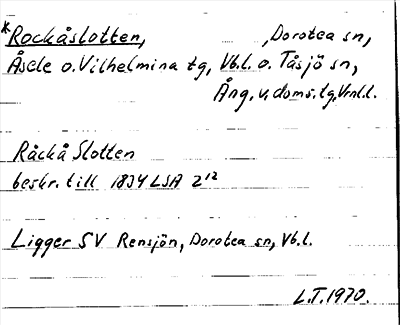 *Rockåslotten, ,Dorotea sn,
Åsele o. Vilhelmina tg, Vb.l. o. Tåsjö sn,
Ång. v. doms. tg, Vrnl.l.
Råckå Slotten
beskr. till 1834 LSA Z¹²
Ligger SV Rensjön, Dorotea sn, Vb.l.
L.T. 1970.